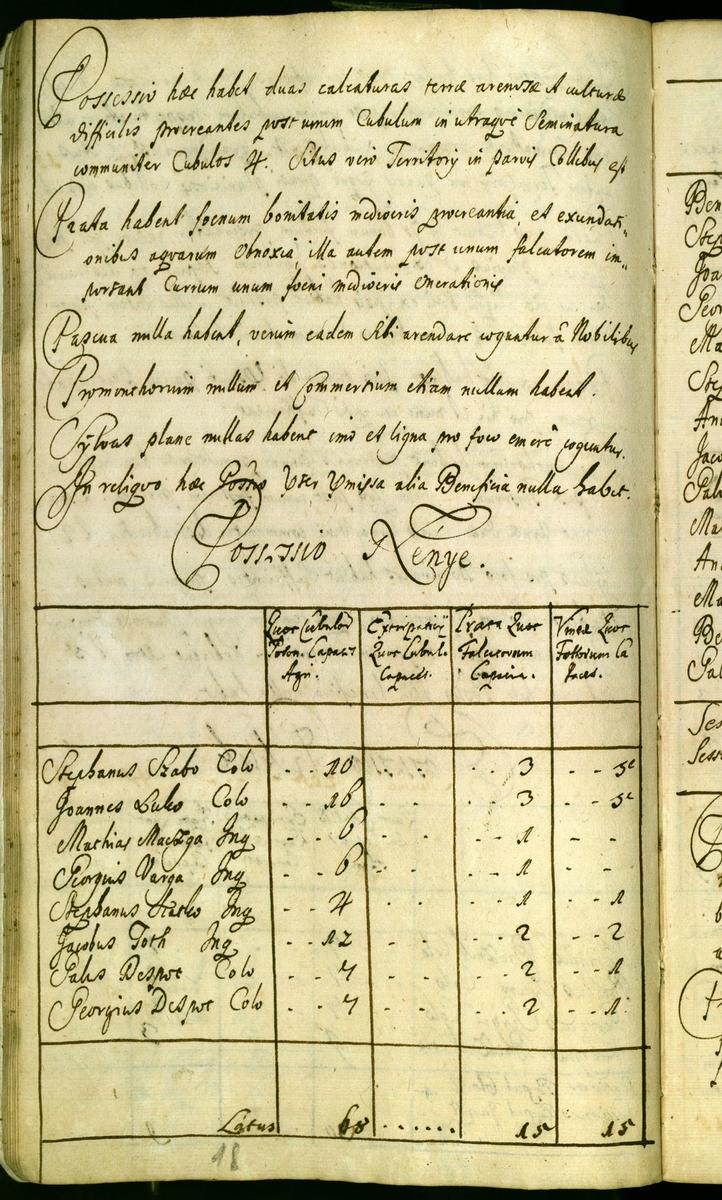 Possessio hæc habet duas calcaturas terræ arenosæ et culturæ
difficilis procreantes post unum Cubulum in utraque Seminatura
communiter Cubulos 4. Situs vero Territory in parvis Collibus est
Prata habent foenum bonitatis mediocris procreantia, et exundati=
onibus aquarum obnoxia, illa autem post unum falcatorem im=
portant Currum unum foeni mediocris onerationis
Pascua nulla habent, verum eadem sibi arendare coguntur à Nobilibus
Promonthorium nullum et Commertium etiam nullum habent.
Sylvas plane nullas habent imo et ligna pro foco emere coguntur.
In reliquo hæc Posseo alia Beneficia nulla habet.
Possessio Kenye.
Quot Cubulor Poson. Capaces Agri.
Quot Cubul. Capaces.
Prata Quot Falcatorum Capacia.
Vineæ Quot Fossorum Ca paces.
Stephanus Szabo Colo - - 10 - - - - 3 - -
Joannes Colo - - 16 - - - - 3 - -
Mathias Ing - - 6 - - - - 1 - -
Georgius Varga Ing - - 6 - - - - 1 - -
Stephanus Ing - - 4 - - - - 1 - - 1
Jacobus Toth Ing - - 12 - - - - 2 - - 2
Palus Despot Colo - - 7 - - - - 2 - - 1
Georgius Despot Colo - - 7 - - - - 2 - - 1
Latus 68 ...... 15 15
18